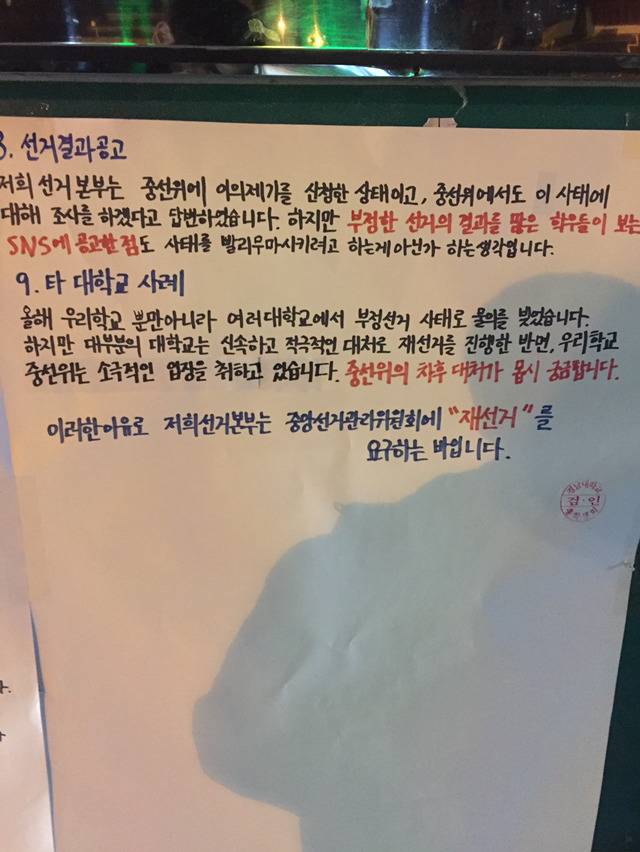 8. 선거결과공고
저희 선거 본부는 중선위에 이의제기를 신청한 상태이고, 중선위에서도 이 사태에
대해 조사를 하겠다고 답변하였습니다. 하지만 부정한 선거의 결과를 많은 학우들이 보는
SNS에 공고한 점도 사태를 발리우마시키려고 하는게 아닌가 하는생각입니다.
9. 타 대학교 사례
올해 우리학교 뿐만아니라 여러대학교에서 부정선거 사태로 물의를 빚었습니다.
하지만 대부분의 대학교는 신속하고 적극적인 대처로 재선거를 진행한 반면, 우리학교
중선위는 소극적인 입장을 취하고 있습니다. 중선위의 차후 대처가 몹시 궁금합니다.
이러한이유로 저희선거본부는 중앙선거관리위원회에 "재선거"를
요구하는 바입니다.
경남대학교
검·인